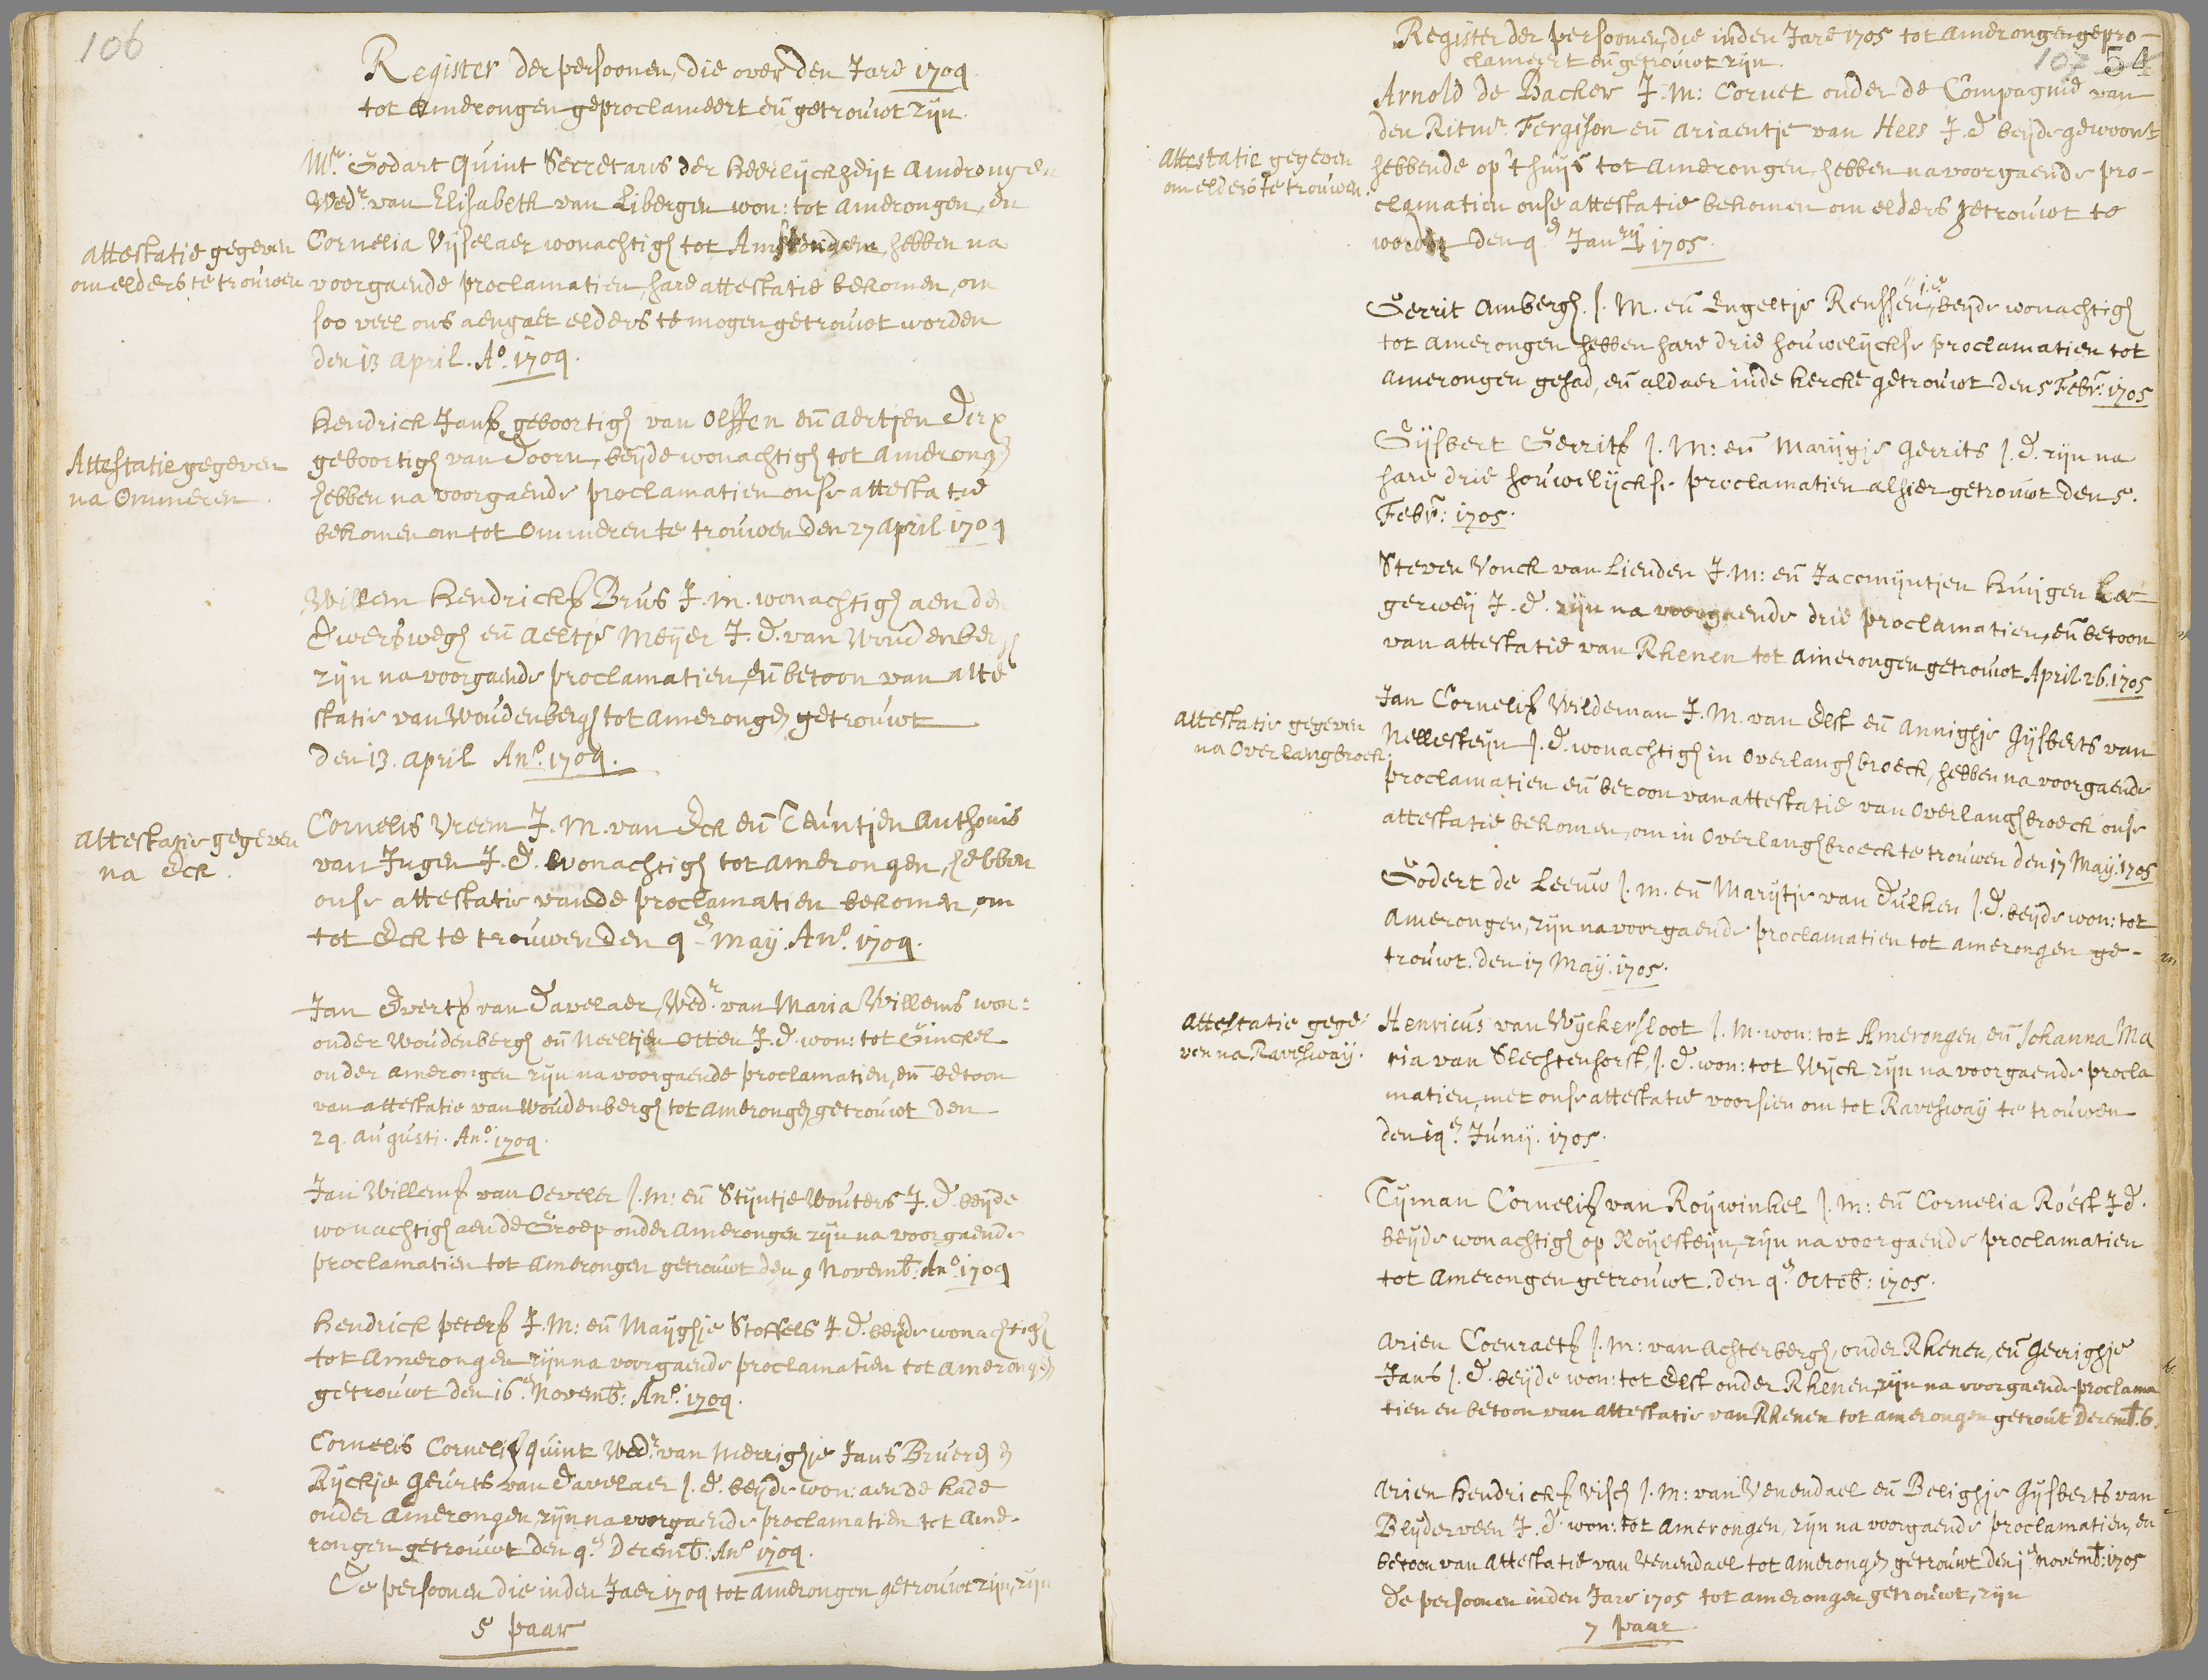 106
Register der persoonen, die over den Jare 1704
tot Amerongen geproclameert eñ getrouwt zijn.
Mr. Godart Quint Secretaris der Heerlijckheijt Amerongen
Wedr. van Elisabeth van Libergen won: tot Amerongen, en
Cornelia Vijselaer wonachtigh tot Amsterdam, hebben na
attestatie gegeven
om elders te trouwen
voorgaende proclamatien, hare attestatie bekomen, om
soo veel ons aengaet elders te mogen getrouwt worden
den 13 April. Ao. 1704.
Hendrick Jansz geboortigh van Olssen eñ Aertjen Dirx
Attestatie gegeven
na Ommeren.
geboortigh van Doorn, beijde wonachtigh tot Amerongen
hebben na voorgaende proclamatien onse attestatie
bekomen om tot Ommeren te trouwen den 27 April 1704
Willem Hendricksz Brus J.M. wonachtigh aen den
Dwerswegh eñ Aeltje Meijer J.D. van Woudenbergh
zijn na voorgaende proclamatien, eñ betoon van atte
statie van Woudenbergh tot Amerongen getrouwt
den 13. April Ano. 1704.
attestatie gegeven
na Eck.
Cornelis Vreem J.M. van Eck eñ Teuntjen Anthonis
van Ingen J.D. wonachtigh tot Amerongen, hebben
onse attestatie vande proclamatien bekomen, om
tot Eck te trouwen den 4en May. Ano. 1704.
Jan Evertsz van Davelaer, Wedr. van Maria Willems won:
onder Woudenbergh eñ Neeltjen Otten J.D. won: tot Ginckel
onder Amerongen zijn na voorgaende proclamatien, eñ betoon
van attestatie van Woudenbergh tot Amerongen getrouwt den
24. Augusti. Ano. 1704.
Jan Willemsz van Oeveler J.M: eñ Stijntje Wouters J.D. beijde
wonachtigh aen de Groep onder Amerongen zijn na voorgaende
proclamatien tot Amerongen getrouwt den 9 Novemb: Ano. 1704
Hendrick Petersz J.M: eñ Maijghje Stoffels J.D. beijde wonachtigh
tot Amerongen zijn na voorgaende proclamatien tot Amerongen
getrouwt den 16en Novemb: Ano. 1704.
Cornelis Cornelisz Quint Wedr. van Merrighje Jans Bruer en
Rijckje Geurts van Davelaer J.D. beijde won: aen de Kade
onder Amerongen, zijn na voorgaende proclamatien tot Ame-
rongen getrouwt den 4en Decemb: Ano 1704.
De persoonen die inden Jaer 1704 tot Amerongen getrouwt zijn, zijn
5 paar
Register der persoonen, die inden Jare 1705 tot Amerongen gepro-
clameert eñ getrouwt zijn.
107 54
Arnold de Backer J.M: Cornet onder de Compagnie van
den Ritmr. Fergison eñ Ariaentje van Hees J.D beijde gewoont
attestatie gegeven
om elders te trouwen.
hebbende op 't huijs tot Amerongen, hebben na voorgaende pro-
clamatien onse attestatie bekomen om elders getrouwt te
worden den 4en Janrij 1705.
Gerrit Ambergh. J.M. eñ Engeltje Renssen, beijde wonachtigh
tot Amerongen hebben hare drie houwelijckse proclamatien tot
Amerongen gehad, eñ aldaer inde Kercke getrouwt den 5 Febr: 1705
Gijsbert Gerritsz J.M: eñ Marijgje Gerrits J.D. zijn na
hare drie houwelijckse proclamatien alhier getrouwt den 5.
Febr: 1705.
Steven Vonck van Lienden J.M: eñ Jacomijntjen Huijgen La-
gerweij J.D. zijn na voorgaende drie proclamatien, eñ betoon
van attestatie van Rhenen tot Amerongen getrouwt April. 26. 1705
attestatie gegeven
na Overlangbroeck.
Jan Cornelisz Wildeman J.M. van Elst eñ Annighje Gijsberts van
Nellesteijn J.D. wonachtigh in Overlanghbroeck, hebben na voorgaende
proclamatien eñ betoon van attestatie van Overlanghbroeck onse
attestatie bekomen, om in Overlanghbroeck te trouwen den 17 May. 1705
Godert de Leeuw J.M. eñ Marijtje van Dulken J.D. beijde won: tot
Amerongen, zijn na voorgaende proclamatien tot Amerongen ge-
trouwt. den 17 Maij. 1705.
attestatie gege-
ven na Ravesway.
Henricus van Wijckersloot J.M. won: tot Amerongen, eñ Johanna Ma
ria van Slechtenhorst, J.D. won: tot Wijck, zijn na voorgaende procla
matien, met onse attestatie voorsien om tot Ravesway te trouwen
den 14en Junij. 1705.
Tijman Cornelisz van Roijwinkel J.M: eñ Cornelia Roest J.D.
beijde wonachtigh op Roijesteijn, zijn na voorgaende proclamatien
tot Amerongen getrouwt. den 4en Octob: 1705.
Arien Coenraetsz J.M: van Achterbergh, onder Rhenen, eñ Gerrighje
Jans J.D. beijde won: tot Elst onder Rhenen, zijn na voorgaende proclama
tien en betoon van attestatie van Rhenen tot Amerongen getrout Decemb. 6.
Arien Hendricksz Visch J.M: van Venendael eñ Belighje Gijsberts van
Blijderveen J.D. won: tot Amerongen, zijn na voorgaende proclamatien, en
betoon van attestatie van Venendael tot Amerongen getrouwt den 1en Novemb: 1705
De persoonen inden Jare 1705 tot Amerongen getrouwt, zijn
7 paar.